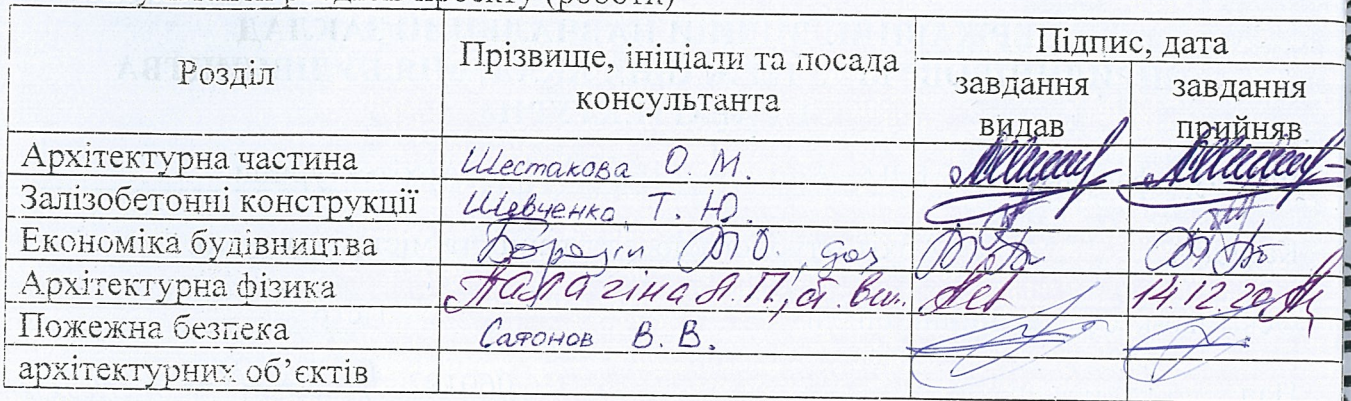 проєкту (роботи)
Розділ
Прізвище, ініціали та посада консультанта
Підпис, дата
завдання видав
завдання прийняв
Архітектурна частина Шестакова О. М.
Залізобетонні конструкції Шевченко Т. Ю.
Економіка будівництва
Архітектурна фізика Палагіна А. П., ст. вик. 14.12.20
Пожежна безпека Сафонов В. В.
архітектурних об’єктів